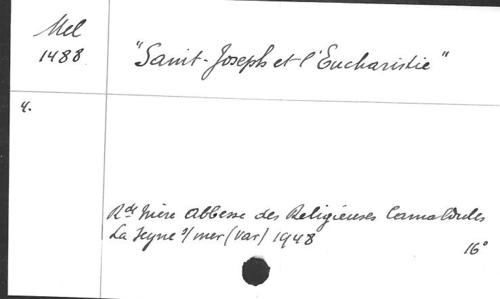 Mel
1488
"Saint-Joseph et l'Eucharistie"
4.
Rde Mère Abbesse des Religieuses Camaldules
La Seyne s/mer (Var) 1948
16°